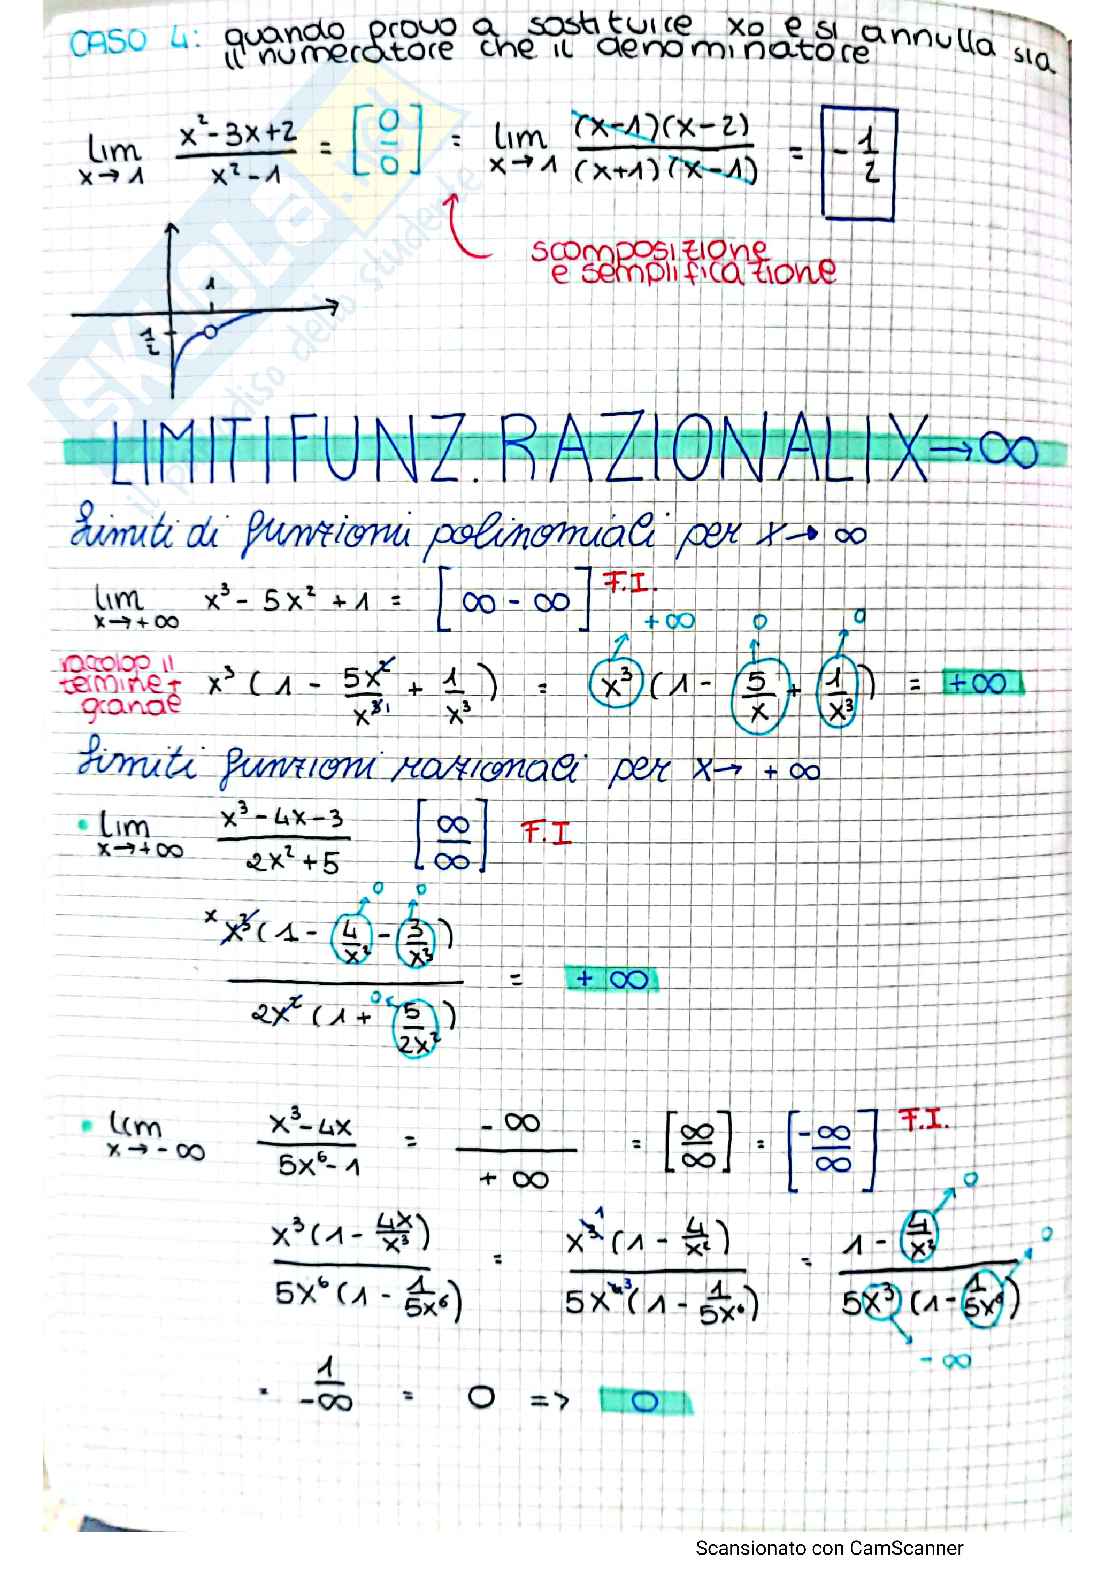 CASO 4: quando provo a sostituire x0 e si annulla sia
il numeratore che il denominatore
lim x→1 (x²-3x+2)/(x²-1) = [0/0] = lim x→1 (x-1)(x-2)/(x+1)(x-1) = -1/2
scomposizione
e semplificazione
1
1/2
LIMITI FUNZ. RAZIONALI X→∞
Limiti di funzioni polinomiali per x→∞
lim x→+∞ x³ - 5x² + 1 = [∞ - ∞] F.I.
+∞ 0 0
raccolgo il
termine +
grande
x³ (1 - 5x²/x³ + 1/x³) = x³ (1 - 5/x + 1/x³) = +∞
Limiti funzioni razionali per x→ +∞
• lim x→+∞ (x³-4x-3)/(2x²+5) [∞/∞] F.I
0 0
x x³(1 - 4/x² - 3/x³) / 2x² (1 + 5/2x²) = +∞
0
• lim x→-∞ (x³-4x)/(5x⁶-1) = -∞/+∞ = [∞/∞] = [-∞/∞] F.I.
x³(1 - 4x/x³)/5x⁶(1 - 1/5x⁶) = x³ (1 - 4/x²)/5x⁶ ³(1 - 1/5x⁶) = 1 - 4/x² / 5x³ (1 - 1/5x⁶)
1 0 0
-∞
= 1/-∞ = 0 => 0
SKUOLA.net
il paradiso dello studente
Scansionato con CamScanner